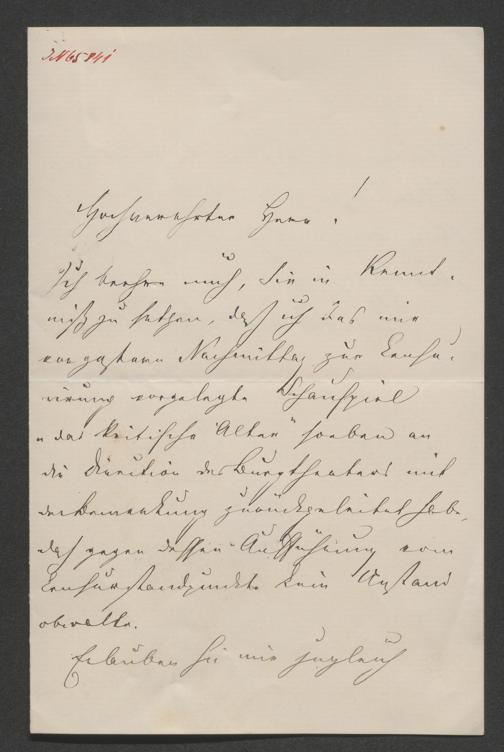 JN 65841
Hochverehrter Herr!
Ich beehre mich, Sie in Kennt-
niß zu setzen, daß ich das mir
vorgestern Nachmittag zur Censu-
rirung vorgelegte Schauspiel
"das kritische Alter" soeben an
die Direction des Burgtheaters mit
der Bemerkung zurückgeleitet habe,
daß gegen dessen Aufführung vom
Censurstandpunkte kein Anstand
obwalte.
Erlauben Sie mir zugleich